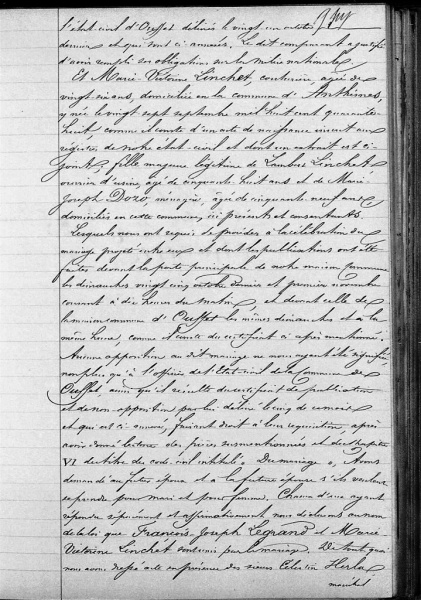 l'état civil d'Ouffet délivré le vingt un octobre
dernier et qui sont ci annexés. Le dit comparant a justifié
d'avoir rempli ses obligations sur la milice nationale.
Et Marie Victoire Linchet, couturière, agée de
vingt six ans, domiciliée en la commune d'Anthisnes,
y née le vingt sept septembre mil huit cent quarante
huit, comme il conste d'un acte de naissance inscrit aux
régistres de notre état civil et dont un extrait est ci-
joint, fille majeure légitime de Lambert Linchet
ouvrier d'usine, agé de cinquante huit ans et de Marie
Joseph Dozo, ménagère, agée de cinquante neuf ans
domiciliés en cette commune, ici présents et consentants.
Lesquels nous ont requis de procéder à la célébration du
mariage projeté entre eux et dont les publications ont été
faites devant la porte principale de notre maison commune
les dimanches vingt cinq octobre dernier et premier novembre
courant à dix heures du matin et devant celle de
la maison commune d'Ouffet les mêmes dimanches et à la
même heure, comme il conste du certificat ci après mentionné.
Aucune opposition au dit mariage ne nous ayant été signifiée
non plus qu'à l'officier de l'Etat civil de la Commune de
Ouffet, ainsi qu'il résulte du certificat de publication
et de non opposition par lui délivré le cinq de ce mois
et qui est ci annexé, faisant droit à leur réquisition, après
avoir donné lecture des pièces susmentionnées et du chapitre
VI du titre du code civil intitulé « Du mariage », Nous
demandé au futur époux et à la future épouse s'ils veulent
se prendre pour mari et pour femme, Chacun d'eux ayant
répondu séparément et affirmativement nous déclarons au nom
de la loi que François-Joseph Legrand et Marie
Victoire Linchet sont unis par le mariage. De tout quoi
nous avons dressé acte en présence des sieurs Célestin Herla
maréchal